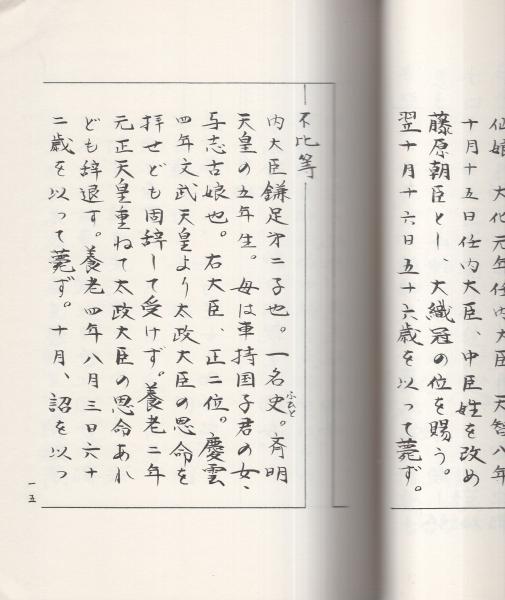 仙娘　大化元年任内大臣　天智八年
十月十五日任内大臣、中臣姓を改め
藤原朝臣とし、大織冠の位を賜う。
翌十月十六日五十六歳を以って薨ず。
不比等
内大臣鎌足才二子也。一名史。斉明
ふひと
天皇の五年生。母は車持国子君の女、
与志古娘也。右大臣、正二位。慶雲
四年文武天皇より太政大臣の恩命を
拝せども固辞して受けず。養老二年
元正天皇重ねて太政大臣の恩命あれ
ども辞退す。養老四年八月三日六十
二歳を以って薨ず。十月、詔を以っ
一五